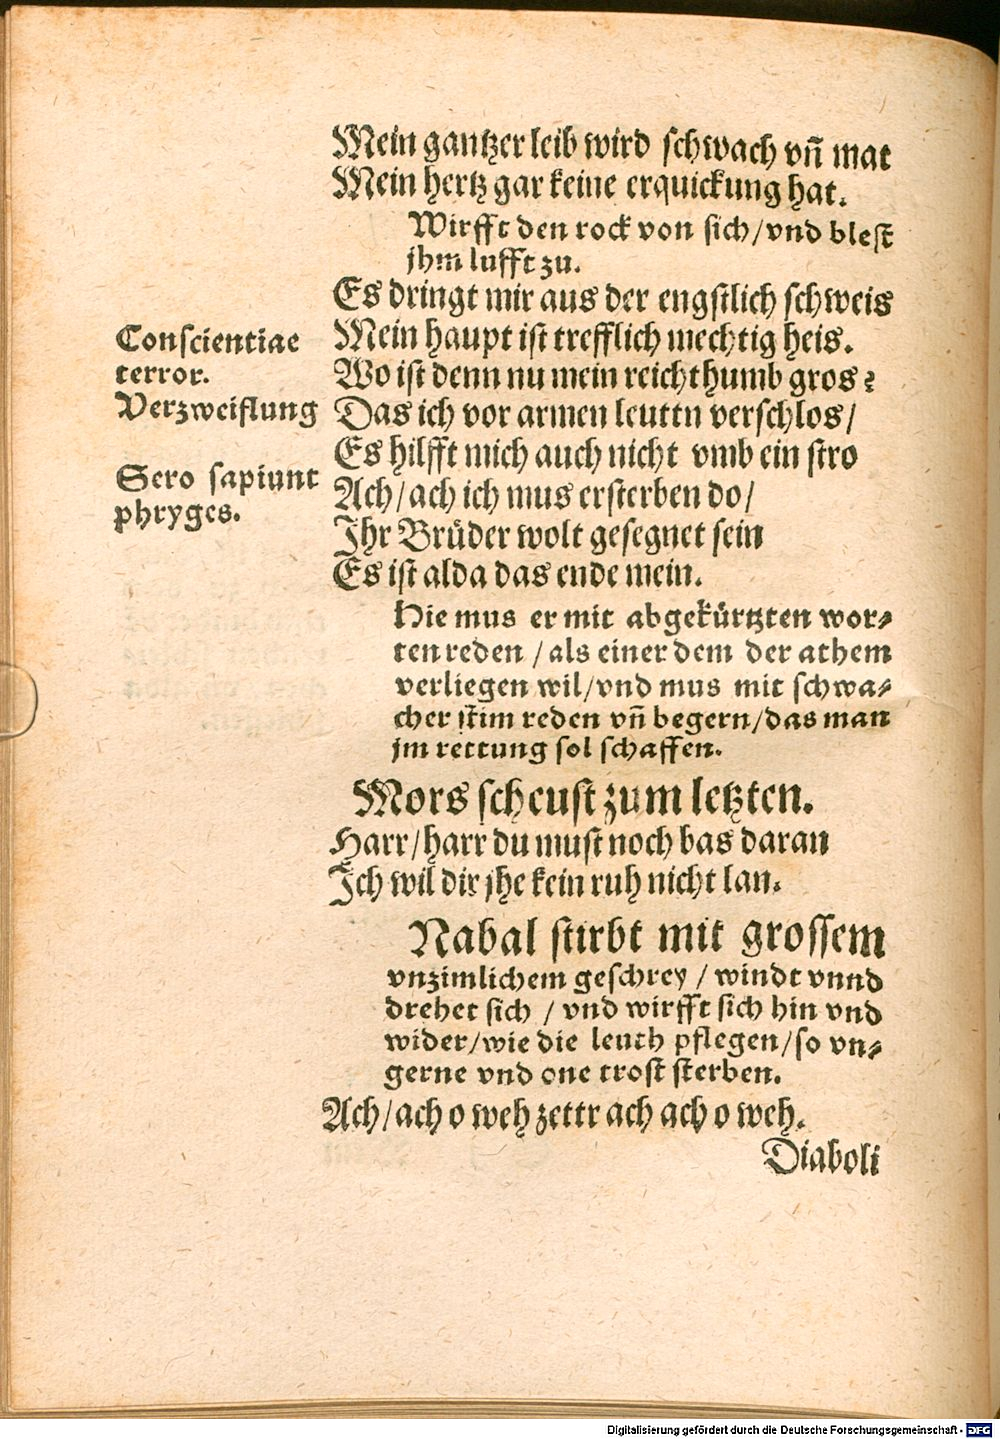 Mein gantzer leib wird schwach vñ mat
Mein hertz gar keine erquickung hat.
Wirfft den rock von sich/vnd blest
jhm lufft zu.
Es dringt mir aus der engstlich schweis
Conscientiae
terror.
Verzweiflung
Mein haupt ist trefflich mechtig heis.
Wo ist denn nu mein reichthumb gros?
Das ich vor armen leuttn verschlos/
Es hilfft mich auch nicht vmb ein stro
Sero sapiunt
phryges.
Ach/ach ich mus ersterben do/
Ihr Brüder wolt gesegnet sein
Es ist alda das ende mein.
Hie mus er mit abgekürtzten wor⸗
ten reden /als einer dem der athem
verliegen wil/vnd mus mit schwa⸗
cher stim reden vñ begern/das man
jm rettung sol schaffen.
Mors scheust zum letzten.
Harr/harr du must noch bas daran
Ich wil dir jhe kein ruh nicht lan.
Nabal stirbt mit grossem
vnzimlichem geschrey / windt vnnd
drehet sich / vnd wirfft sich hin vnd
wider/wie die leuth pflegen/so vn⸗
gerne vnd one trost sterben.
Ach/ach o weh zettr ach ach o weh.
Diaboli
Digitalisierung gefördert durch die Deutsche Forschungsgemeinschaft - DFG